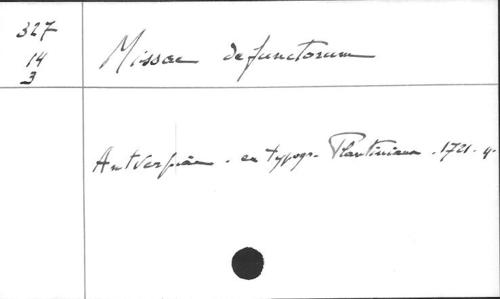 327
14
3
Missae defunctorum
Antverpiae. ex typogr. Plantiniana. 1721. 4.